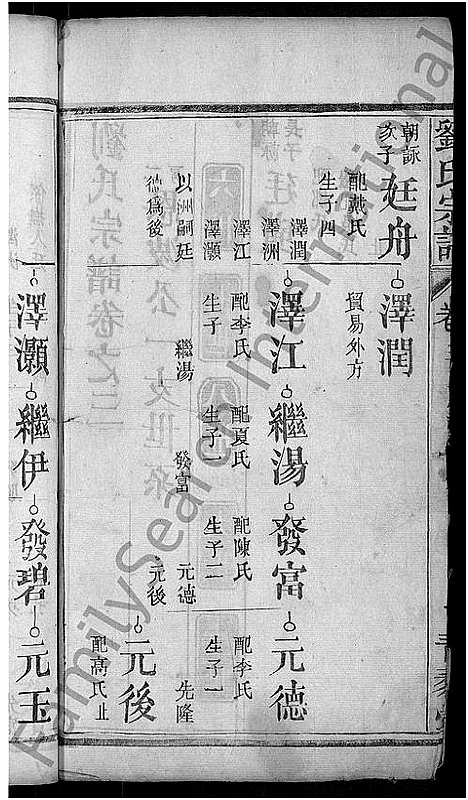 劉氏宗譜
卷
朝詠
次子
廷舟
配戴氏
生子四
澤潤
澤洲
澤江
澤灝
以洲嗣廷
後
澤潤
貿易外方
澤江
配李氏
生子一
繼湯
繼湯
配夏氏
生子一
發富
發富
配陳氏
生子二
元德
元後
元德
配李氏
生子一
先隆
元後
配高氏止
澤灝
繼伊
發碧
元玉
FamilySearch International